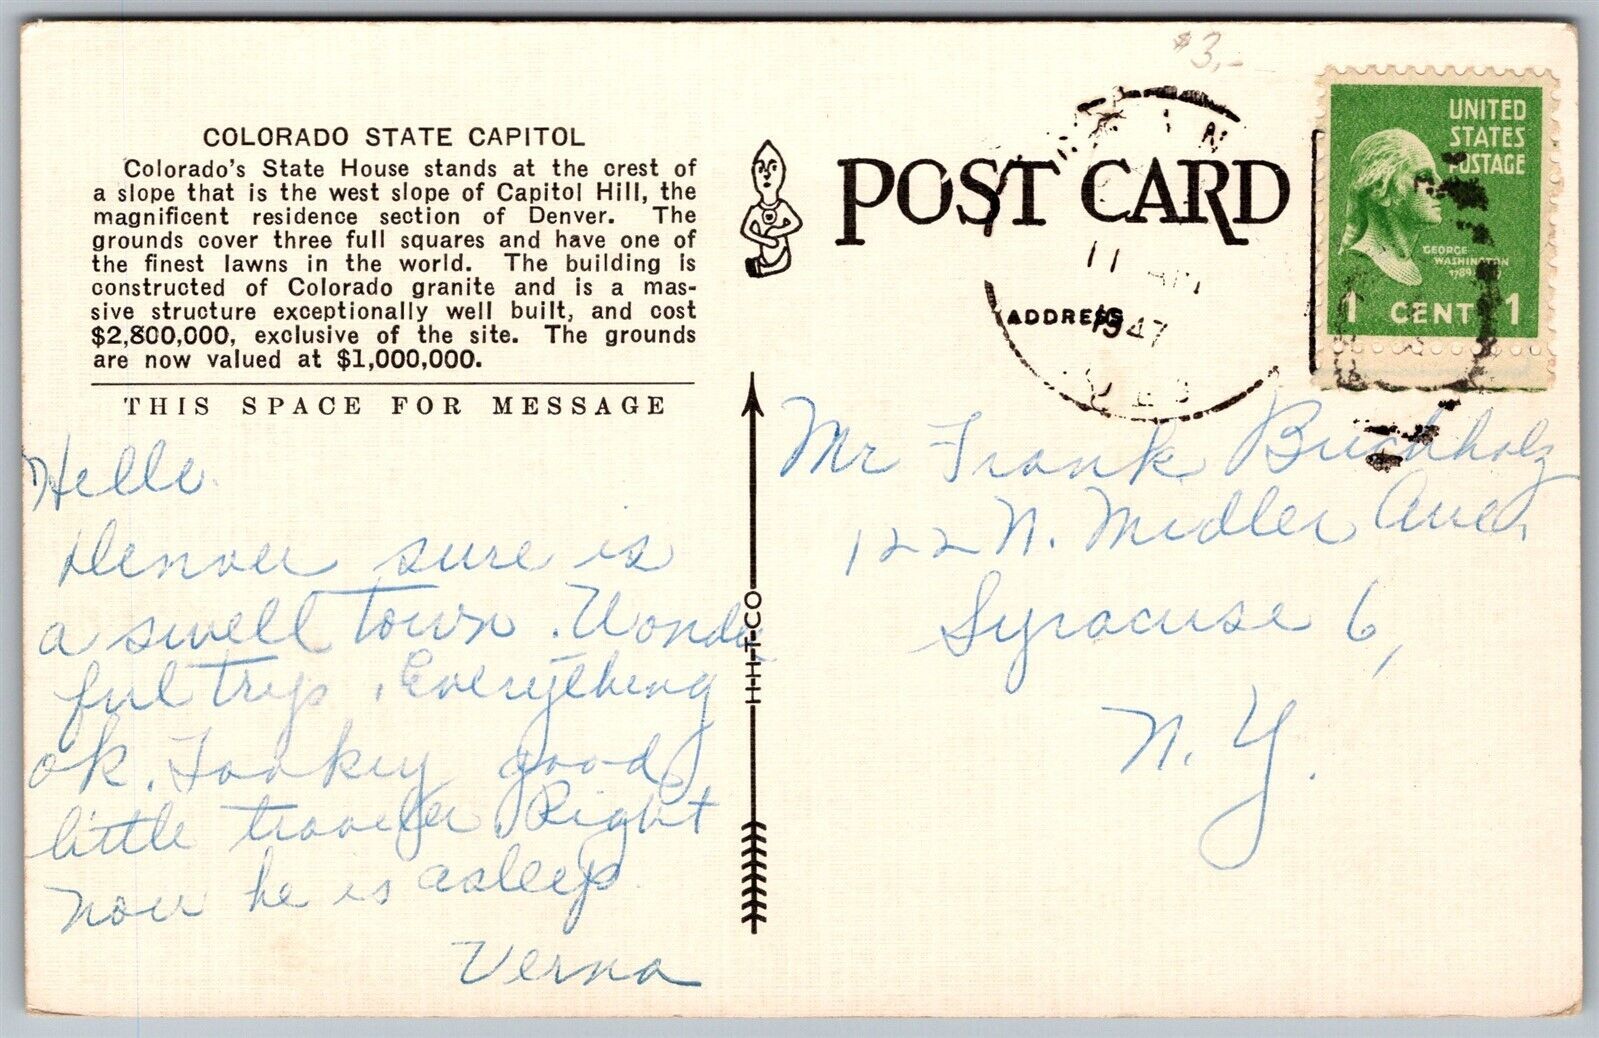 $3,-
COLORADO STATE CAPITOL
Colorado's State House stands at the crest of
a slope that is the west slope of Capitol Hill, the
magnificent residence section of Denver. The
grounds cover three full squares and have one of
the finest lawns in the world. The building is
constructed of Colorado granite and is a mas-
sive structure exceptionally well built, and cost
$2,800,000, exclusive of the site. The grounds
are now valued at $1,000,000.
THIS SPACE FOR MESSAGE
Hello.
Denver sure is
a swell town. Wonder
ful trip. Everything
ok. good
little traveler. Right
now he is asleep.
Verna
H-H-T-CO
POST CARD
ADDRESS
11 AM
1947
UNITED
STATES
POSTAGE
GEORGE
WASHINGTON
1789
1 CENT 1
Mr Frank Buchholz
122 N. Midler Ave,
Syracuse 6,
N. Y.